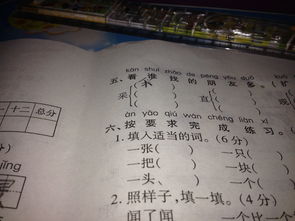 kàn shuí zhǎo de péng you duō
五、看谁找的朋友多。
木
采 直
àn yāo qiú wán chéng liàn xí
六、按要求完成练习。
1. 填入适当的词。(6分)
一张( ) 一只(
一把( ) 一块(
一头、 ) 一个(
2. 照样子,填一填。(4分)
闻了闻 一个比一个
十二 总分
jīng